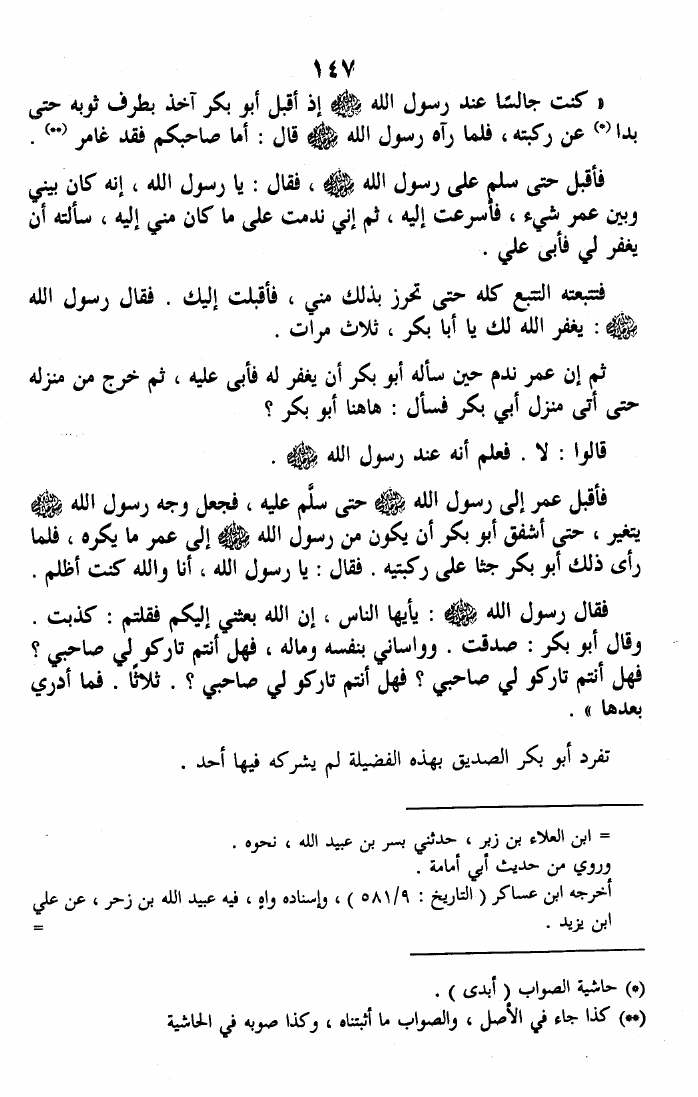 ١٤٧
« كنت جالسًا عند رسول الله ﷺ إذ أقبل أبو بكر آخذ بطرف ثوبه حتى
بدا(*) عن ركبته ، فلما رآه رسول الله ﷺ قال : أما صاحبكم فقد غامر (**) .
فأقبل حتى سلم على رسول الله ﷺ ، فقال : يا رسول الله ، إنه كان بيني
وبين عمر شيء ، فأسرعت إليه ، ثم إني ندمت على ما كان مني إليه ، سألته أن
يغفر لي فأبى علي .
فتتبعته التتبع كله حتى تحرز بذلك مني ، فأقبلت إليك . فقال رسول الله
ﷺ : يغفر الله لك يا أبا بكر ، ثلاث مرات .
ثم إن عمر ندم حين سأله أبو بكر أن يغفر له فأبى عليه ، ثم خرج من منزله
حتى أتى منزل أبي بكر فسأل : هاهنا أبو بكر ؟
قالوا : لا . فعلم أنه عند رسول الله ﷺ .
فأقبل عمر إلى رسول الله ﷺ حتى سلَّم عليه ، فجعل وجه رسول الله ﷺ
يتغير ، حتى أشفق أبو بكر أن يكون من رسول الله ﷺ إلى عمر ما يكره ، فلما
رأى ذلك أبو بكر جثا على ركبتيه . فقال : يا رسول الله ، أنا والله كنت أظلم .
فقال رسول الله ﷺ : يأيها الناس ، إن الله بعثني إليكم فقلتم : كذبت .
وقال أبو بكر : صدقت . وواساني بنفسه وماله ، فهل أنتم تاركو لي صاحبي ؟
فهل أنتم تاركو لي صاحبي ؟ فهل أنتم تاركو لي صاحبي ؟ . ثلاثًا . فما أدري
بعدها » .
تفرد أبو بكر الصديق بهذه الفضيلة لم يشركه فيها أحد .
= ابن العلاء بن زبر ، حدثني بسر بن عبيد الله ، نحوه .
وروي من حديث أبي أمامة .
أخرجه ابن عساكر ( التاريخ : ٥٨١/٩ ) ، وإسناده واهٍ ، فيه عبيد الله بن زحر ، عن علي
ابن يزيد . =
(*) حاشية الصواب ( أبدى ) .
(**) كذا جاء في الأصل ، والصواب ما أثبتناه ، وكذا صوبه في الحاشية